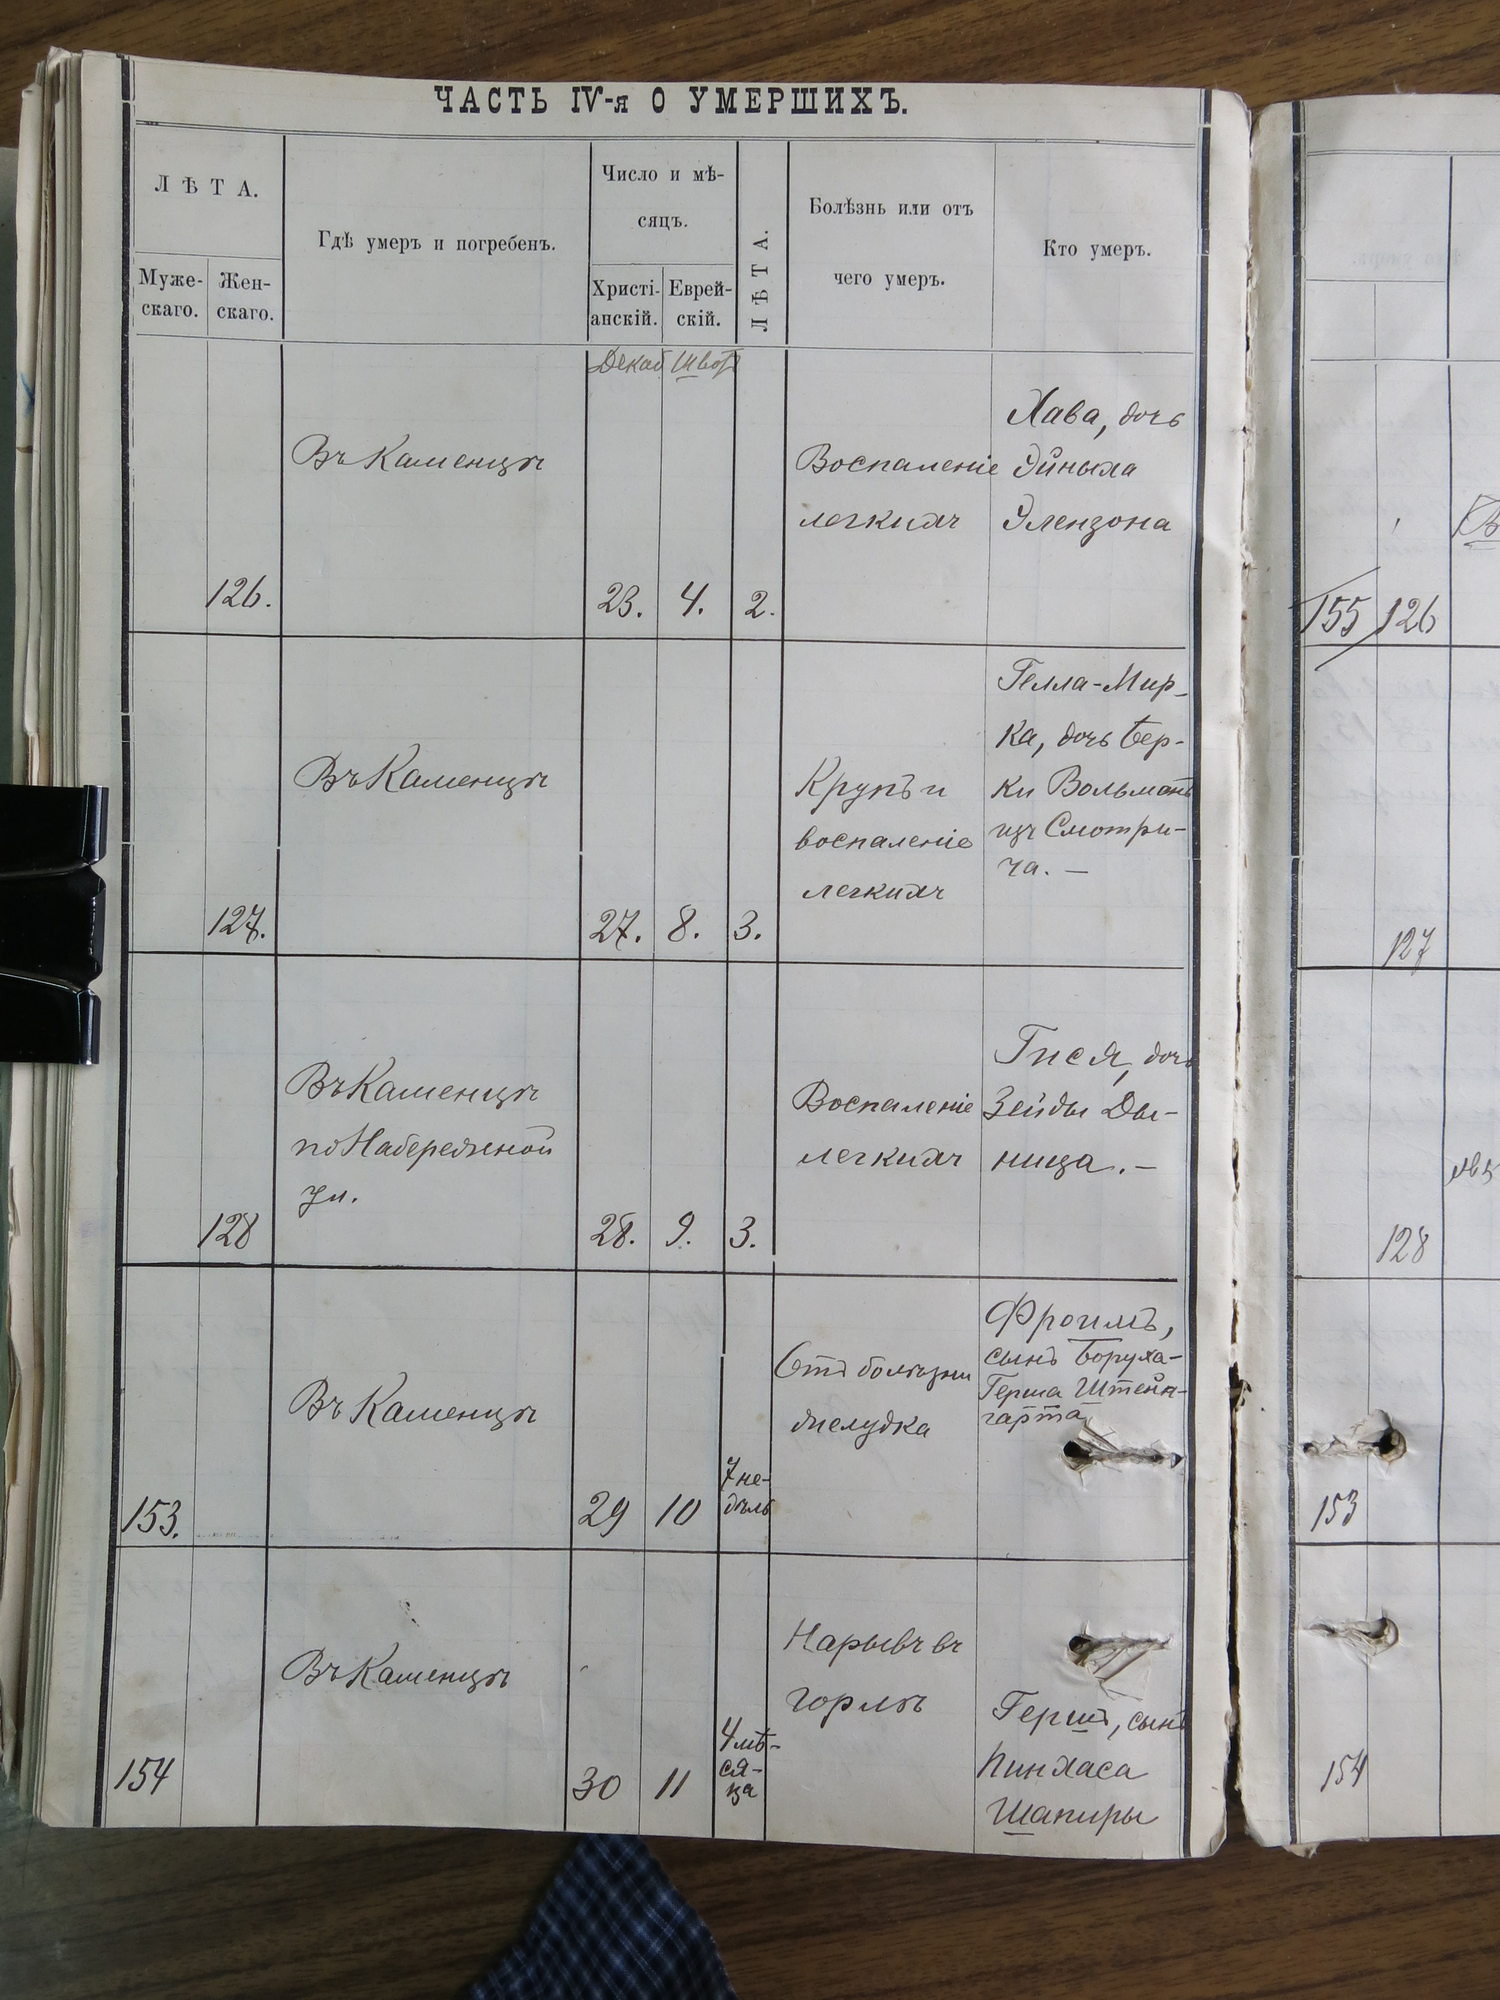 ЧАСТЬ IV-я О УМЕРШИХЪ.
ЛѢТА.
Муже-
скаго.
Жен-
скаго.
Гдѣ умеръ и погребенъ.
Число и мѣ-
сяцъ.
Христі-
анскій.
Еврей-
скій.
ЛѢТА.
Болѣзнь или отъ
чего умеръ.
Кто умеръ.
Декаб
126.
Въ Каменцѣ
23.
4.
2.
Воспаленіе
легкихъ
Хава, дочь
Эйныха
Элензона
127.
Въ Каменцѣ
27.
8.
3.
Крупъ и
воспаленіе
легкихъ
Гелла-Мир-
ка, дочь Бер-
ки Вольманъ
изъ Смотри-
ча. —
128
Въ Каменцѣ
по Набережной
ул.
28.
9.
3.
Воспаленіе
легкихъ
Гися, дочь
Зейды Ды-
ница. —
153.
Въ Каменцѣ
29
10
7 не-
дѣль
Отъ болѣзни
желудка
Фроимъ,
сынъ Боруха-
Герша Штейн-
гарта
154
Въ Каменцѣ
30
11
4 мѣ-
ся-
ца
Нарывъ въ
горлѣ
Гершъ, сынъ
Пинхаса
Шапиры
155
126
127
128
153
154